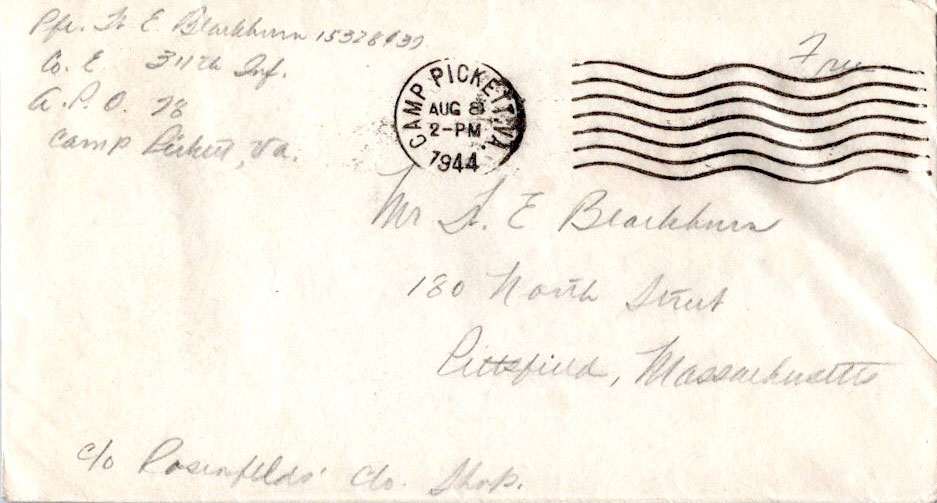 Pfc. H. E. Blackburn 15328439
Co. E 311th Inf.
A. P. O. 78
Camp Pickett, Va.
Free
CAMP PICKETT, VA.
AUG 8
2-PM
1944
Mr H. E Blackburn
180 North Street
Pittsfield, Massachusetts
c/o Rosenfelds' Clo. Shop.